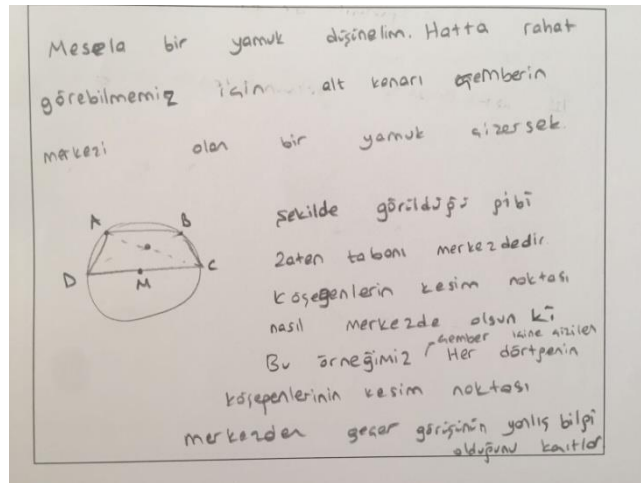 Mesela bir yamuk düşünelim. Hatta rahat
görebilmemiz için alt kenarı çemberin
merkezi olan bir yamuk çizersek.
Şekilde görüldüğü gibi
A B
zaten tabanı merkezdedir.
D M C
Köşegenlerin kesim noktası
nasıl merkezde olsun ki
Bu örneğimiz çember içine çizilen
Her dörtgenin
köşegenlerinin kesim noktası
merkezden geçer görüşünün yanlış bilgi
olduğunu kanıtlar